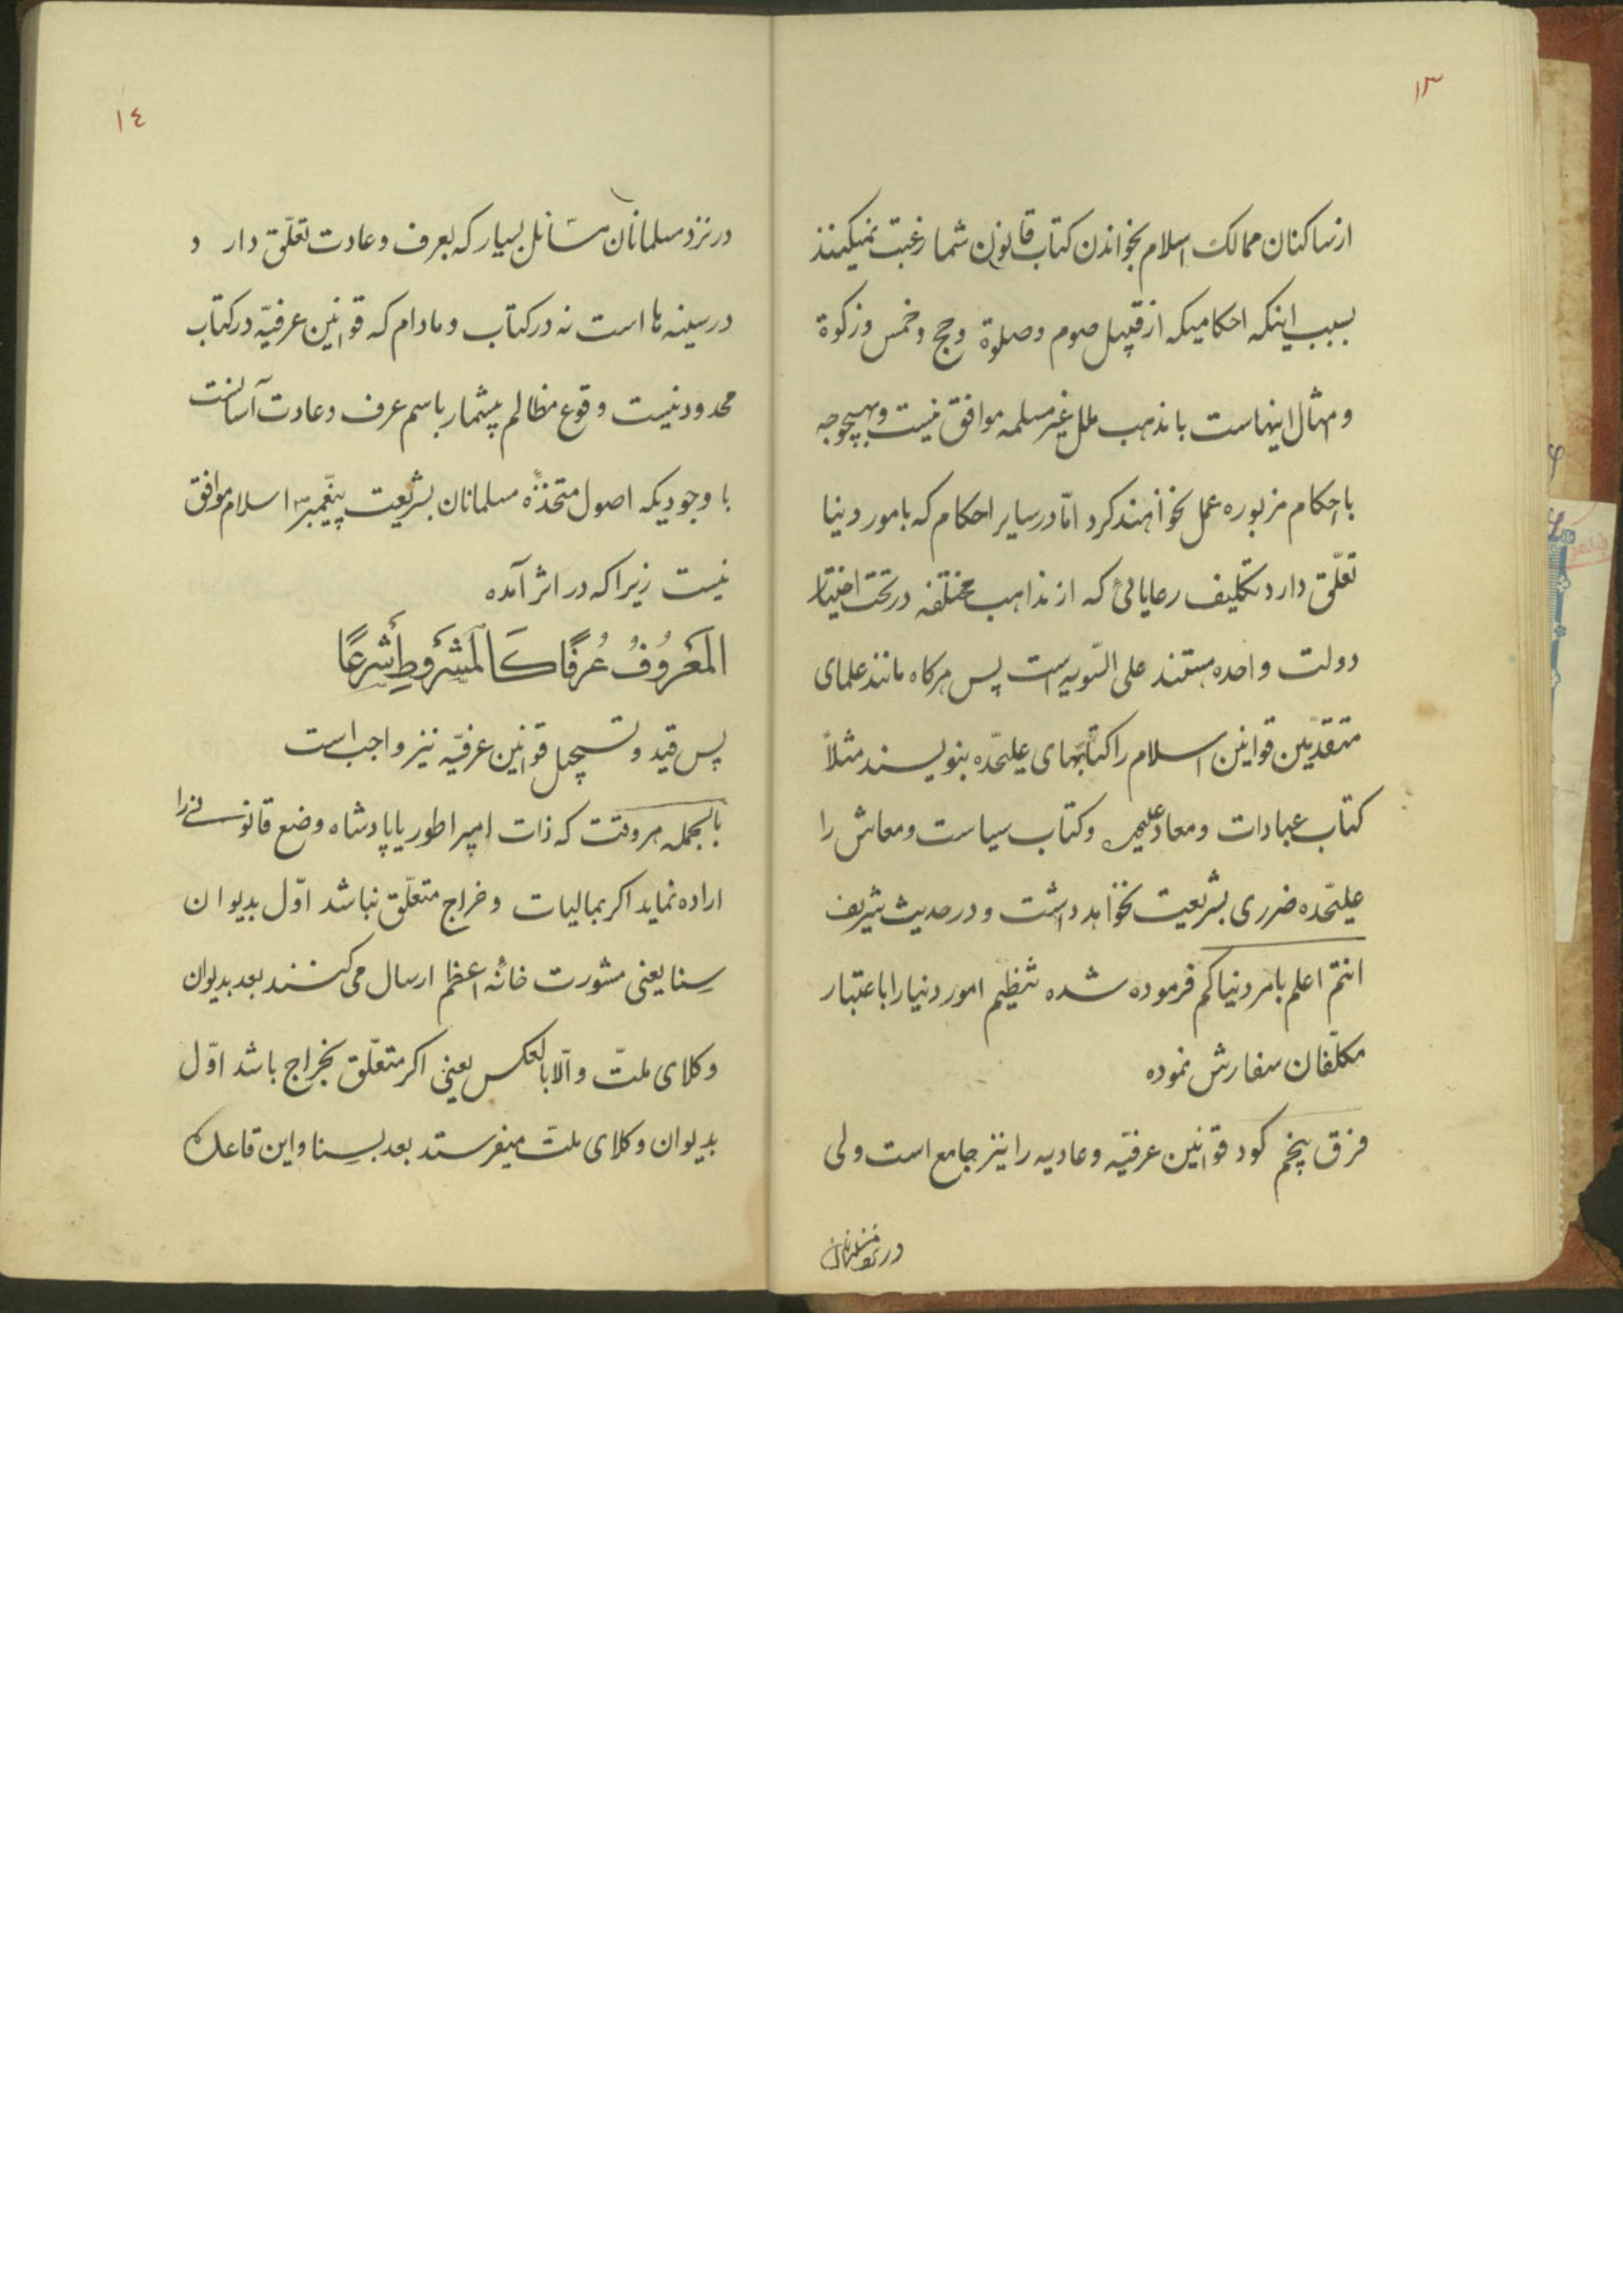 ۱۳
از ساکنان ممالک اسلام بخواندن کتاب قانون شما رغبت نمیکنند
بسبب اینکه احکامیکه از قبیل صوم وصلوة وحج وخمس وزکوة
ومثال اینهاست با مذهب ملل غیر مسلمه موافق نیست وبهیچوجه
باحکام مزبوره عمل نخواهند کرد امّا در سایر احکام که بامور دنیا
تعلّق دارد تکلیف رعایائی که از مذاهب مختلفه در تحت اختیار
دولت واحده هستند علی السّویه است پس هرکاه مانند علمای
متقدّمین قوانین اسلام را کتابهای علیحّده بنویسند مثلاً
کتاب عبادات ومعاد علیحده وکتاب سیاست ومعاش را
علیحّده ضرری بشریعت نخواهد داشت و در حدیث شریف
انتم اعلم بامر دنیاکم فرموده شده تنظیم امور دنیا را با عتبار
مکلّفان سفارش نموده
فرق پنجم کود قوانین عرفیّه وعادیه را نیز جامع است ولی
در نزد مسلمانان
۱٤
در نزد مسلمانان مسّائل بسیار که بعرف وعادت تعلّق دار د
در سینه ها است نه در کتاب ومادام که قوانین عرفیّه در کتاب
محدود نیست وقوع مظالم بیشمار باسم عرف وعادت آسانست
با وجودیکه اصول متخذهٔ مسلمانان بشریعت پیغمبر اسلام موافق
نیست زیرا که در اثر آمده
المَعَرُوُفُ عُرفًا كَالمَشَروطِ شَرعًا
پس قید وتسجیل قوانین عرفیّه نیز واجب است
بالجمله هر وقت که ذات امپراطور یا پادشاه وضع قانونی را
اراده نماید اکر بمالیات وخراج متعلّق نباشد اوّل بدیوان
سِنا یعنی مشورت خانهٔ اعظم ارسال می کنند بعد بدیوان
وکلای ملّت والّا بالعکس یعنی اکر متعلّق بخراج باشد اوّل
بدیوان وکلای ملّت میفرستد بعد بسِنا واین قاعده